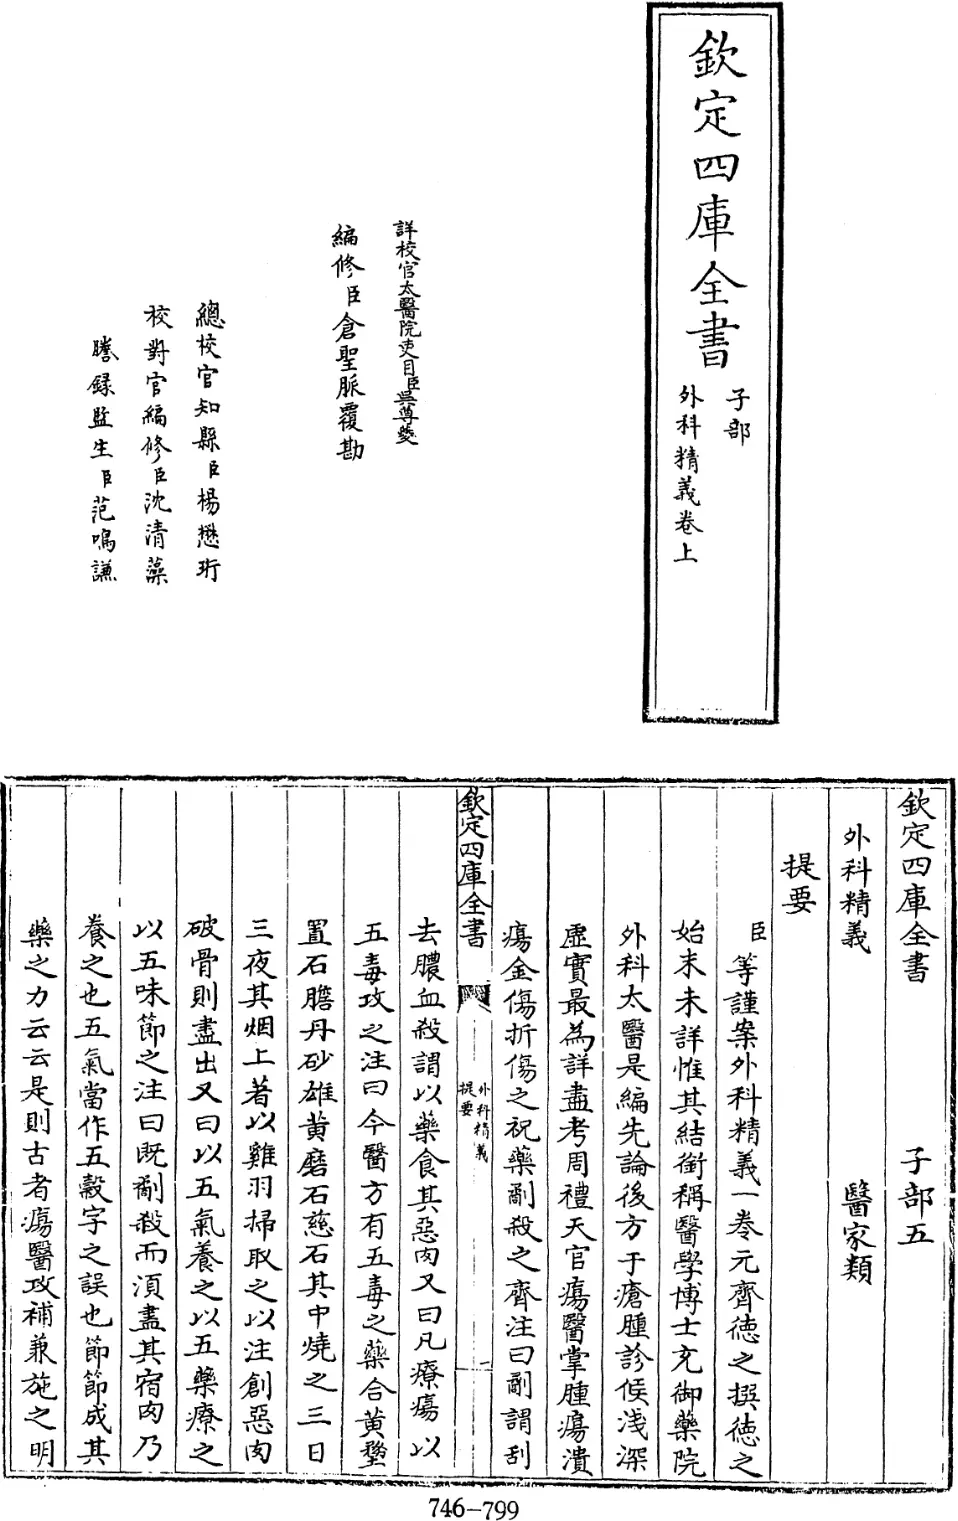 欽定四庫全書
子部
外科精義卷上
詳校官太醫院吏目臣吳尊夔
編修臣倉聖脈覆勘
總校官知縣臣楊懋珩
校對官編修臣沈清藻
謄錄監生臣范鳴謙
欽定四庫全書 子部五
外科精義 醫家類
提要
臣等謹案外科精義一卷元齊徳之撰徳之
始末未詳惟其結銜稱醫學博士充御藥院
外科太醫是編先論後方于瘡腫診候淺深
虛實最為詳盡考周禮天官瘍醫掌腫瘍潰
瘍金傷折傷之祝藥劀殺之齊注曰劀謂刮
欽定四庫全書
外科精義
提要
一
去膿血殺謂以藥食其惡肉又曰凡療瘍以
五毒攻之注曰今醫方有五毒之藥合黃堥
置石膽丹砂雄黃礜石慈石其中燒之三日
三夜其烟上著以雞羽掃取之以注創惡肉
破骨則盡出又曰以五氣養之以五藥療之
以五味節之注曰既劀殺而須盡其宿肉乃
養之也五氣當作五穀字之誤也節節成其
藥之力云云是則古者瘍醫攻補兼施之明
746-799